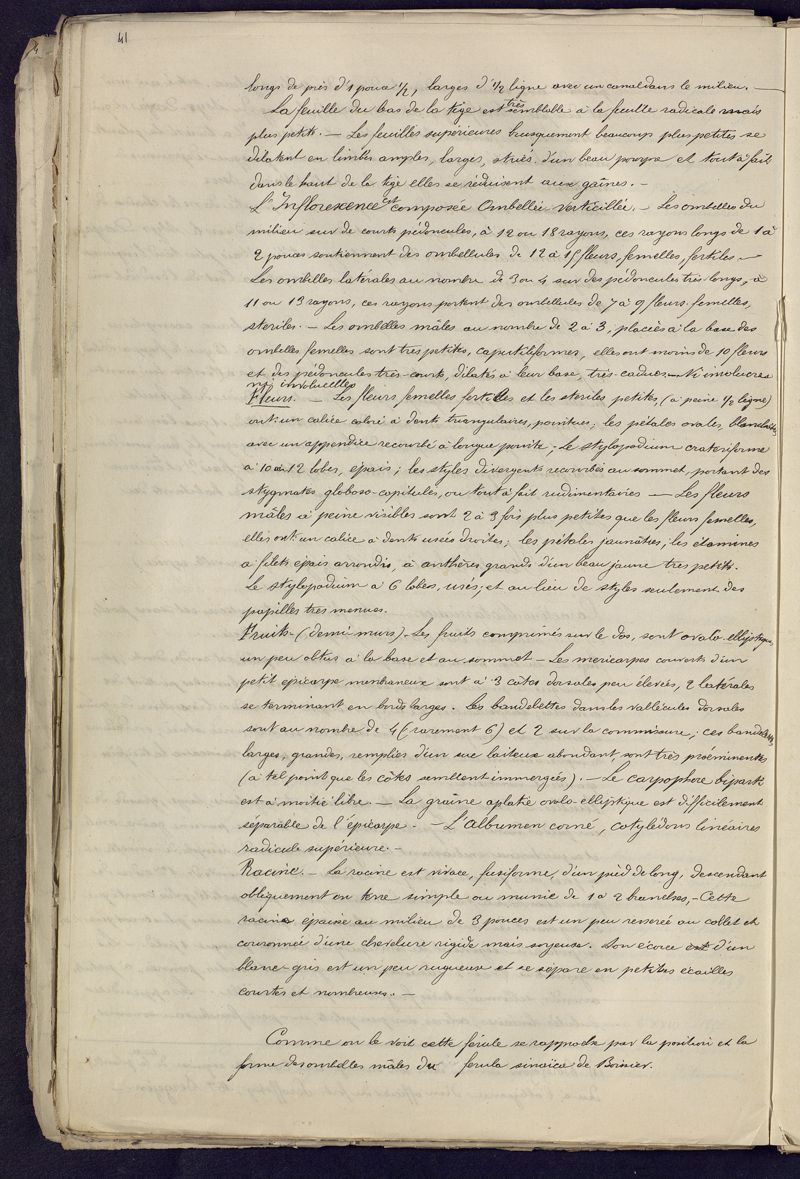 41
longs de près d'1 pouce 1/2, larges d'1/2 ligne avec un canal dans le milieu. —
La feuille du bas de la tige est très semblable à la feuille radicale mais
plus petite. — Les feuilles supérieures brusquement beaucoup plus petites se
dilatent en limbes amples, larges, striés d'un beau pourpre et tout à fait
dans le haut de la tige elles se réduisent aux gaînes. —
L'Inflorescence est composée Ombellée verticillée. — Les ombelles du
milieu sur de courts pédoncules, à 12 ou 18 rayons, ces rayons longs de 1 à
2 pouces soutiennent des ombellules de 12 à 15 fleurs, femelles, fertiles. —
Les ombelles latérales au nombre de 3 ou 4 sur des pédoncules très longs, à
11 ou 13 rayons, ces rayons portent des ombellules de 7 à 9 fleurs femelles,
steriles. — Les ombelles mâles au nombre de 2 à 3, placées à la base des
ombelles femelles sont très petites, capitiliformes, elles ont moins de 10 fleurs
et des pédoncules très-courts, dilatés à leur base, très-caducs. — Ni involucres
ni involucelles
Fleurs. — Les fleurs femelles fertiles et les steriles petites, (à peine 1/2 ligne)
ont un calice coloré à dents triangulaires, pointues; les pétales ovales, blanchâtres,
avec un appendice recourbé à longue pointe; Le stylopodium crateriforme
à 10 à 12 lobes, épais; les styles divergents recourbés au sommet, portant des
stygmates globoso-capitulés, ou tout à fait rudimentaires — Les fleurs
mâles à peine visibles sont 2 à 3 fois plus petites que les fleurs femelles,
elles ont un calice à dents usées droites; les pétales jaunâtres; les étamines
à filets épais arrondis, à anthères grands d'un beau jaune très petits.
Le stylopodium à 6 lobes, usés, et au lieu de styles seulement des
papilles tres menues.
Fruits — (demi murs) — Les fruits comprimés sur le dos, sont ovalo-elliptiques,
un peu obtus à la base et au sommet — Les mericarpes couverts d'un
petit epicarpe membraneux sont à 3 côtes dorsales peu élevées, 2 latérales
se terminant en bords larges. Les bandelettes dans les vallécules dorsales
sont au nombre de 4 (rarement 6) et 2 sur la commissure; ces bandelettes
larges, grandes, remplies d'un suc laiteux abondant, sont très proéminentes
(à tel point que les côtes semblent immergées). — Le carpophore bipartit
est à moitié libre. — La graine aplatie ovalo-elliptique est difficilement
séparable de l'épicarpe. — L'albumen corné, cotylédons linéaires
radicule supérieure. —
Racine. — La racine est vivace, fusiforme, d'un pied de long, descendant
obliquement en terre simple ou munie de 1 à 2 branches, — Cette
racine épaisse au milieu de 3 pouces est un peu resserée au collet et
couronnée d'une chevelure rigide mais soyeuse. Son écorce est d'un
blanc-gris est un peu rugueuse et se sépare en petites écailles
courtes et nombreuses. —
Comme on le voit cette férule se rapproche par la position et la
forme des ombelles mâles du ferula sinaïca de Boissier.